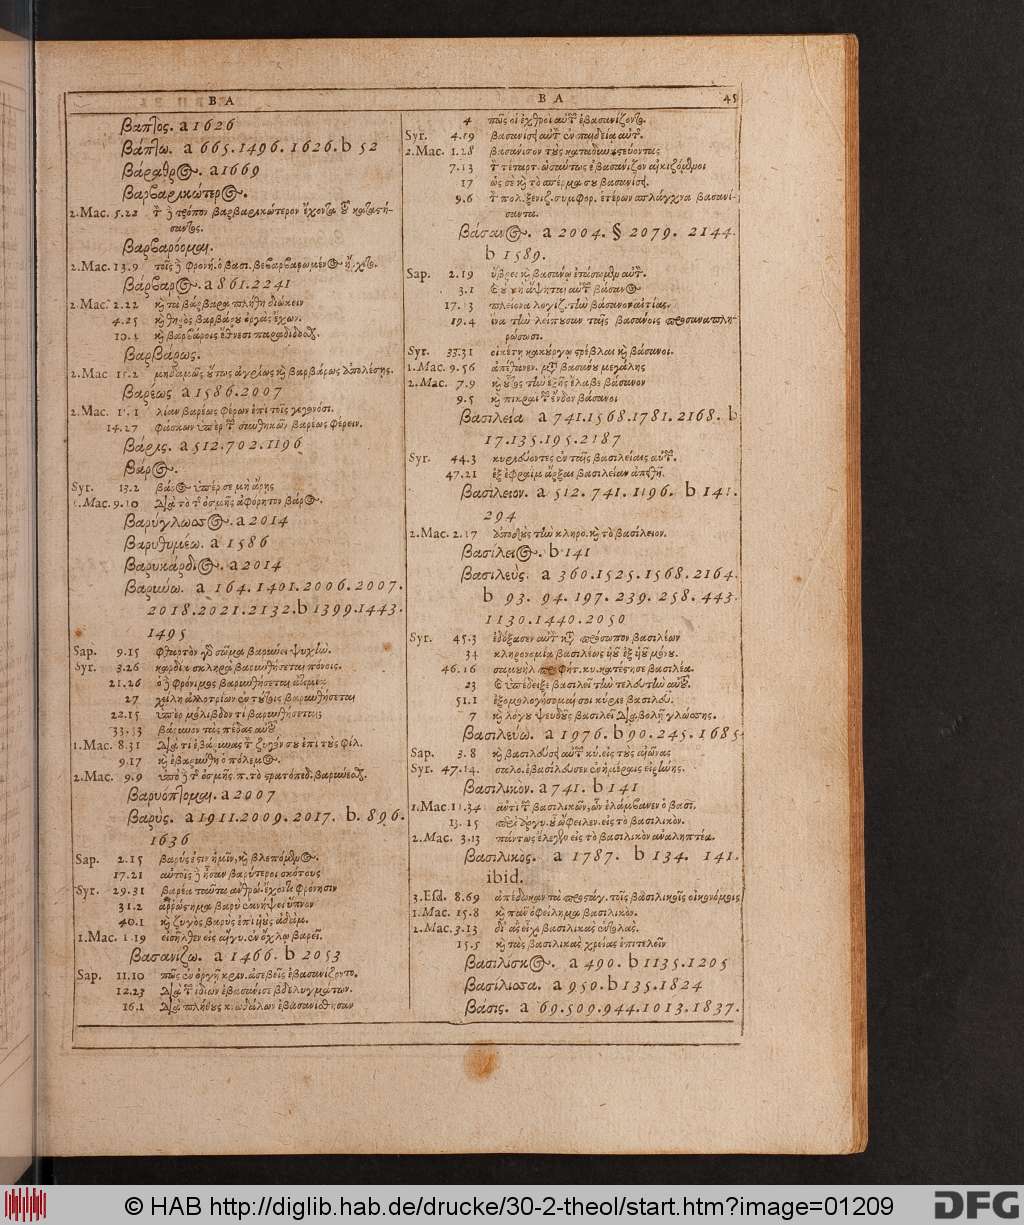 B A
βαπτος. a 1626
βάπτω. a 665. 1496. 1626. b 52
βάραθρος. a 1669
βαρβαρικώτερος.
2. Mac. 5.22 τ ϳ τρόπον βαρβαρικώτερον ἔχοντα
βαρβαρόομαι.
2. Mac. 13.9
βάρβαρος. a 861. 2241
2. Mac. 2.22 τὰ βάρβαρα πλήθη διώκειν
4.25 θηρὸς βαρβάρου ὀργὰς ἔχων.
10.4 βαρβάροις ἔθνεσι παραδίδοσθαι.
βαρβάρως.
2. Mac 15.2 μηδαμῶς οὕτως ἀγρίως καὶ βαρβάρως ἀπολέσῃς.
βαρέως a 1586. 2007
2. Mac. λίαν βαρέως φέρων ἐπὶ τοῖς γεγονόσι.
14.27 βαρέως φέρειν.
βάρις. a 512. 702. 1196
βάρος.
Syr. 13.2 βάρος ὑπέρ σε μὴ ἄρῃς
9.10 διὰ τὸ τ ὀσμῆς ἀφόρητον βάρος.
βαρύγλωσσος. a 2014
βαρυθυμέω. a 1586
βαρυκάρδιος. a 2014
βαρύνω. a 164. 1401. 2006. 2007.
2018. 2021. 2132. b 1399. 1443.
1495
Sap. 9.15 φθαρτὸν γδ σῶμα βαρύνει ψυχὴν.
Syr. 3.26 καρδία σκληρὰ βαρυνθήσεται πόνοις.
21.26
27 χείλη ἀλλοτρίων ἐν τούτοις βαρυνθήσεται
22.15 ὑπὲρ μόλιβδον τί βαρυνθήσεται;
33.33 βάρυνον τὰς πέδας αὐτοῦ
1. Mac. 8.31 Διὰ τί ἐβάρυνας τ ζυγόν σου ἐπὶ τοὺς φίλ.
9.17 καὶ ἐβαρύνθη ὁ πόλεμος.
2. Mac. 9.9
βαρυόπτομαι. a 2007
βαρύς. a 1911. 2009. 2017. b. 896.
1636
Sap. 2.15 βαρύς ἐστιν ἡμῖν, καὶ βλεπόμενος.
17.21 αὐτοῖς ϳ ἦσαν βαρύτεροι σκότους
Syr. 29.31 βαρέα ταῦτα ἀνθρώ. ἔχοντι φρόνησιν
31.2 ἀῤῥώστημα βαρὺ
40.1 καὶ ζυγὸς βαρὺς ἐπὶ υἱοὺς ἀδάμ.
1. Mac. 1.19 εἰσῆλθεν εἰς αἴγυ. ἐν ὄχλῳ βαρεῖ.
βασανίζω. a 1466. b 2053
Sap. 11.10 πῶς ἐν ὀργῇ κριν. ἀσεβεῖς ἐβασανίζοντο.
12.23 Διὰ τ ἰδίων ἐβασάνισε βδελυγμάτων.
16.1 Διὰ πλήθους κνωδάλων ἐβασανίσθησαν
B A 45
4 πῶς οἱ ἐχθροὶ αὐτ ἐβασανίζοντο.
Syr. 4.19 βασανίσῃ αὐτ ἐν παιδείᾳ αὐτ.
2. Mac. 1.28 βασάνισον τοὺς καταδυναστεύοντας
7.13 τ τέταρτ. ὡσαύτως ἐβασάνιζον αἰκιζόμενοι
17 ὡς σὲ καὶ τὸ σπέρμα σου βασανίσῃ.
9.6 τ πολ. ξενιζ. συμφορ. ἑτέρων σπλάγχνα βασανί-
σαντα.
βάσανος. a 2004. § 2079. 2144.
b 1589.
Sap. 2.19 ὕβρει καὶ βασάνῳ ἐτάσωμεν αὐτ.
3.1 οὐ μὴ ἅψηται αὐτ βάσανος
17.13 πλείονα λογίζ. τὴν βάσανον αἰτίας.
19.4 ἵνα τὴν λείπουσαν ταῖς βασάνοις προσαναπλη-
ρώσωσι.
Syr. 33.31 οἰκέτῃ κακούργῳ στρέβλαι καὶ βάσανοι.
1. Mac. 9.56 ἀπέθανεν. μτ βασάνου μεγάλης
2. Mac. 7.9 βάσανον
9.5 καὶ πικραὶ τ ἔνδον βάσανοι
βασιλεία a 741. 1568. 1781. 2168. b
17. 135. 195. 2187
Syr. 44.3 κυριεύοντες ἐν ταῖς βασιλείαις αὐτ.
47.21 ἐξ ἐφραὶμ ἄρξαι βασιλείαν ἀπειθῆ.
βασίλειον. a 512. 741. 1196. b 141.
294
2. Mac. 2.17 ἀποδοὺς τὴν κληρο. καὶ τὸ βασίλειον.
βασίλειος. b 141
βασιλεὺς. a 360. 1525. 1568. 2164.
b 93. 94. 197. 239. 258. 443.
1130. 1440. 2050
Syr. 45.3 ἐδόξασεν αὐτ κατὰ πρόσωπον βασιλέων
34 κληρονομία βασιλέως υἱοῦ ἐξ υἱοῦ μόνου.
46.16 σαμουὴλ προφήτ. κυ. κατέστησε βασιλέα.
23 καὶ ὑπέδειξε βασιλεῖ τὴν τελευτὴν αὐτοῦ.
51.1 ἐξομολογήσομαί σοι κύριε βασιλεῦ.
7 καὶ λόγου ψευδοῦς βασιλεῖ Διαβολὴ γλώσσης.
βασιλεύω. a 1976. b 90. 245. 1685.
Sap. 3.8 καὶ βασιλεύσει αὐτ κύ. εἰς τοὺς αἰῶνας
Syr. 47.14. σαλο. ἐβασίλευσεν ἐν ἡμέραις εἰρήνης.
βασιλικὸν. a 741. b 141
1. Mac. 11.34 ἀντὶ τ βασιλικῶν, ὧν ἐλάμβανεν ὁ βασι.
13.15 περὶ ἀργυ. οὗ ὤφειλεν. εἰς τὸ βασιλικὸν.
2. Mac. 3.13 πάντως ἔλεγεν εἰς τὸ βασιλικὸν ἀναληπτέα.
βασιλικος. a 1787. b 134. 141.
ibid.
3. Esd. 8.69 ἀπέδωκαν τὰ προστάγ. τοῖς βασιλικοῖς οἰκονόμοις
1. Mac. 15.8 καὶ πᾶν ὀφείλημα βασιλικὸν.
2. Mac. 3.13 δι' ἃς εἶχε βασιλικὰς ἐντολὰς.
15.5 καὶ τὰς βασιλικὰς χρείας ἐπιτελεῖν
βασιλίσκος. a 490. b 1135. 1205
βασίλισσα. a 950. b 135. 1824
βάσις. a 69. 509. 944. 1013. 1837.
© HAB http://diglib.hab.de/drucke/30-2-theol/start.htm?image=01209
DFG